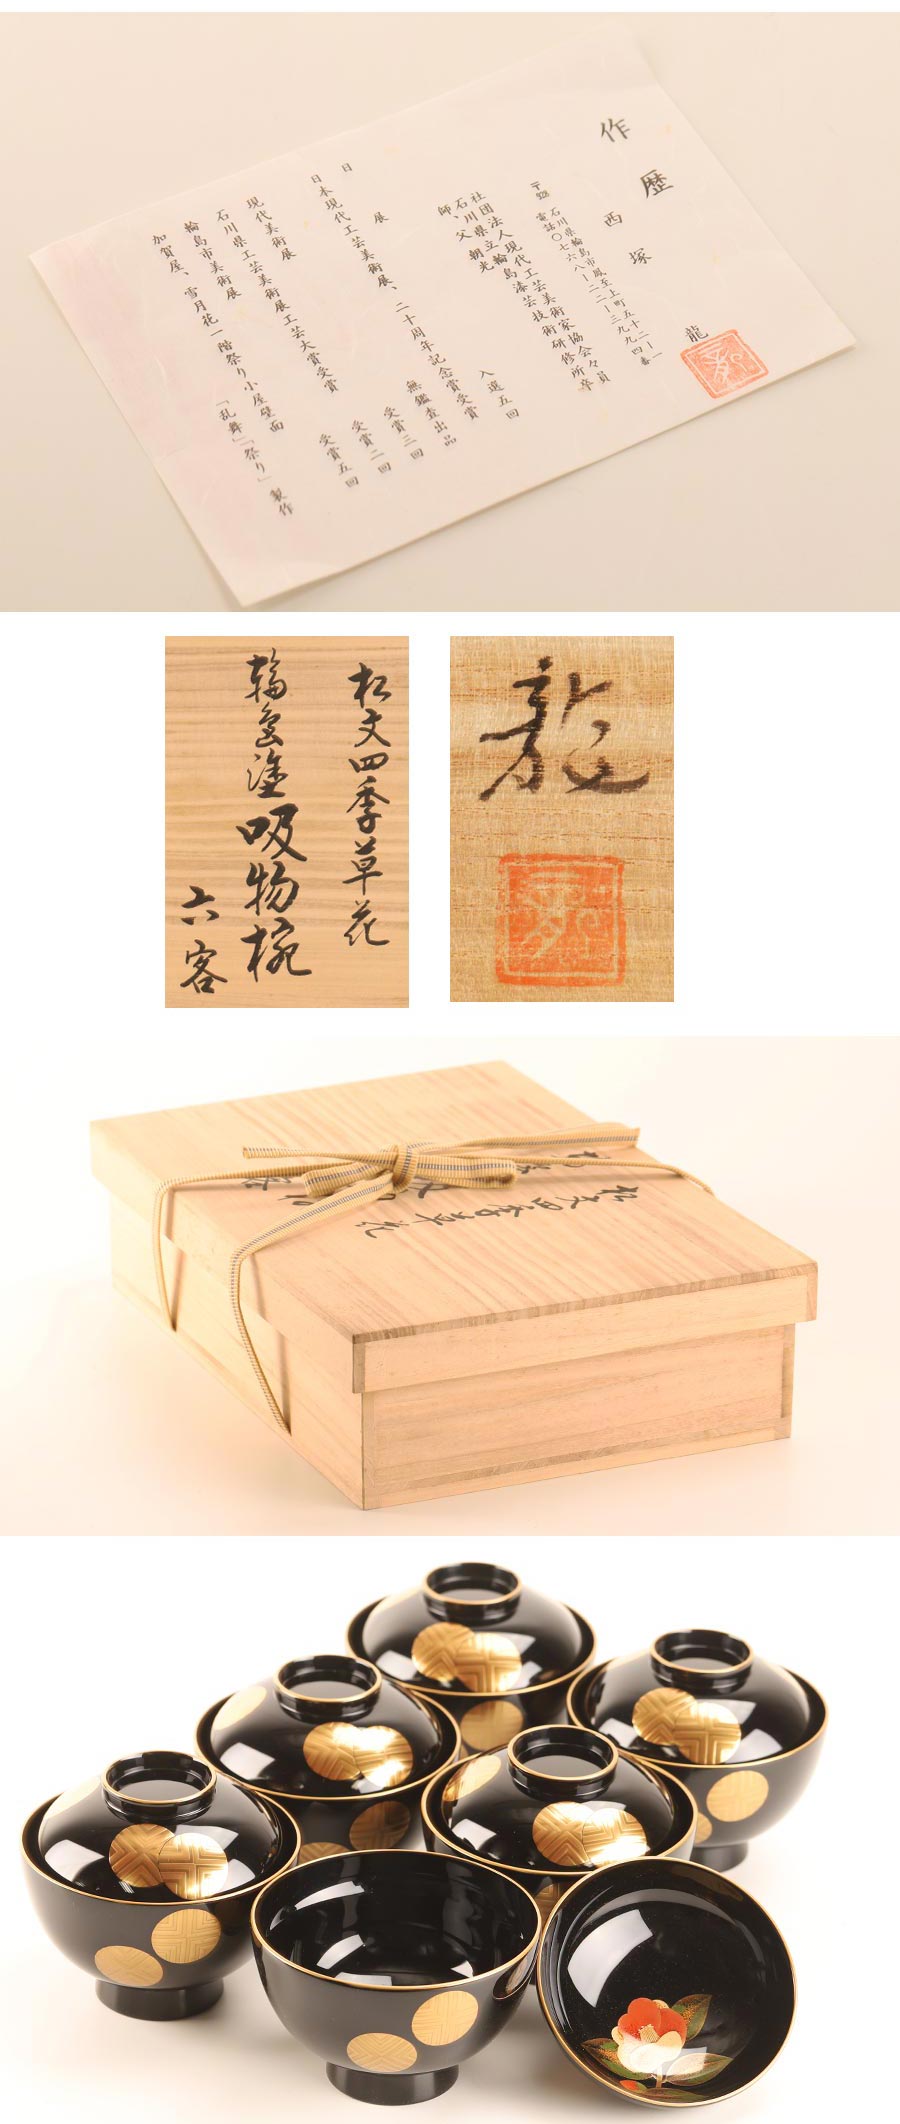 作歴
西塚龍
石川県輪島市鳳至上町五十二ー一
電話〇七六八ー二二ー三九九四番
社団法人現代工芸美術家協会々員
石川県立輪島漆芸技術研修所卒
師、父 朝光
日展 入選五回
日本現代工芸美術展、二十周年記念賞受賞
無鑑査出品
現代美術展 受賞三回
石川県工芸美術展工芸大賞受賞 受賞二回
輪島市美術展 受賞五回
加賀屋、雪月花一階祭り小屋壁面 「乱舞」「祭り」製作
松文四季草花
輪島塗吸物椀
六客
龍
松文四季草花